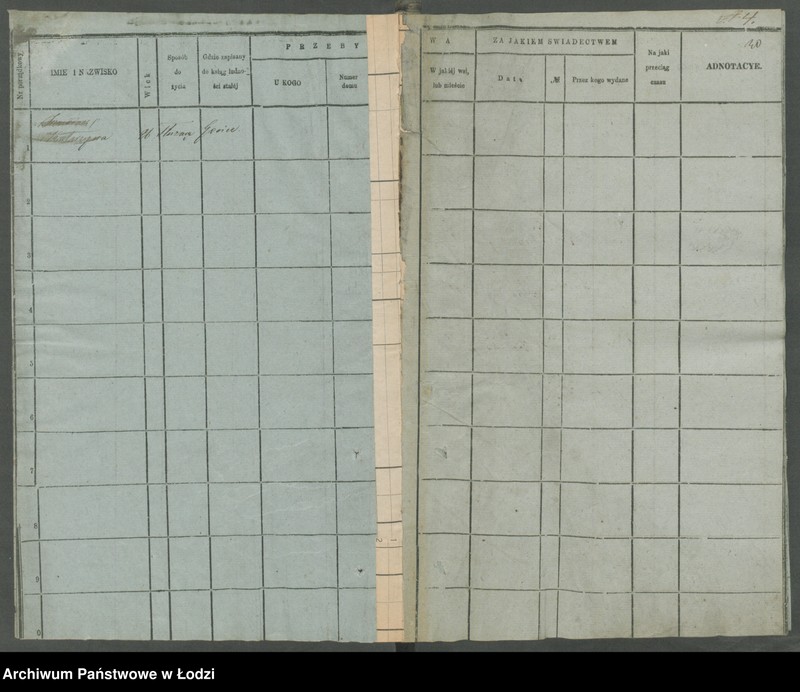 Nr porządkowy
IMIE I NAZWISKO
Wiek
Sposób
do
życia
Gdzie zapisany
do ksiąg ludno-
ści stałéj
PRZEBY
U KOGO
Numer
domu
WA
W jakiéj wsi,
lub mieście
ZA JAKIEM SWIADECTWEM
Data
№
Przez kogo wydane
Na jaki
przeciąg
czasu
ADNOTACYE.
1
2
3
4
5
6
7
8
9
0
Archiwum Państwowe w Łodzi